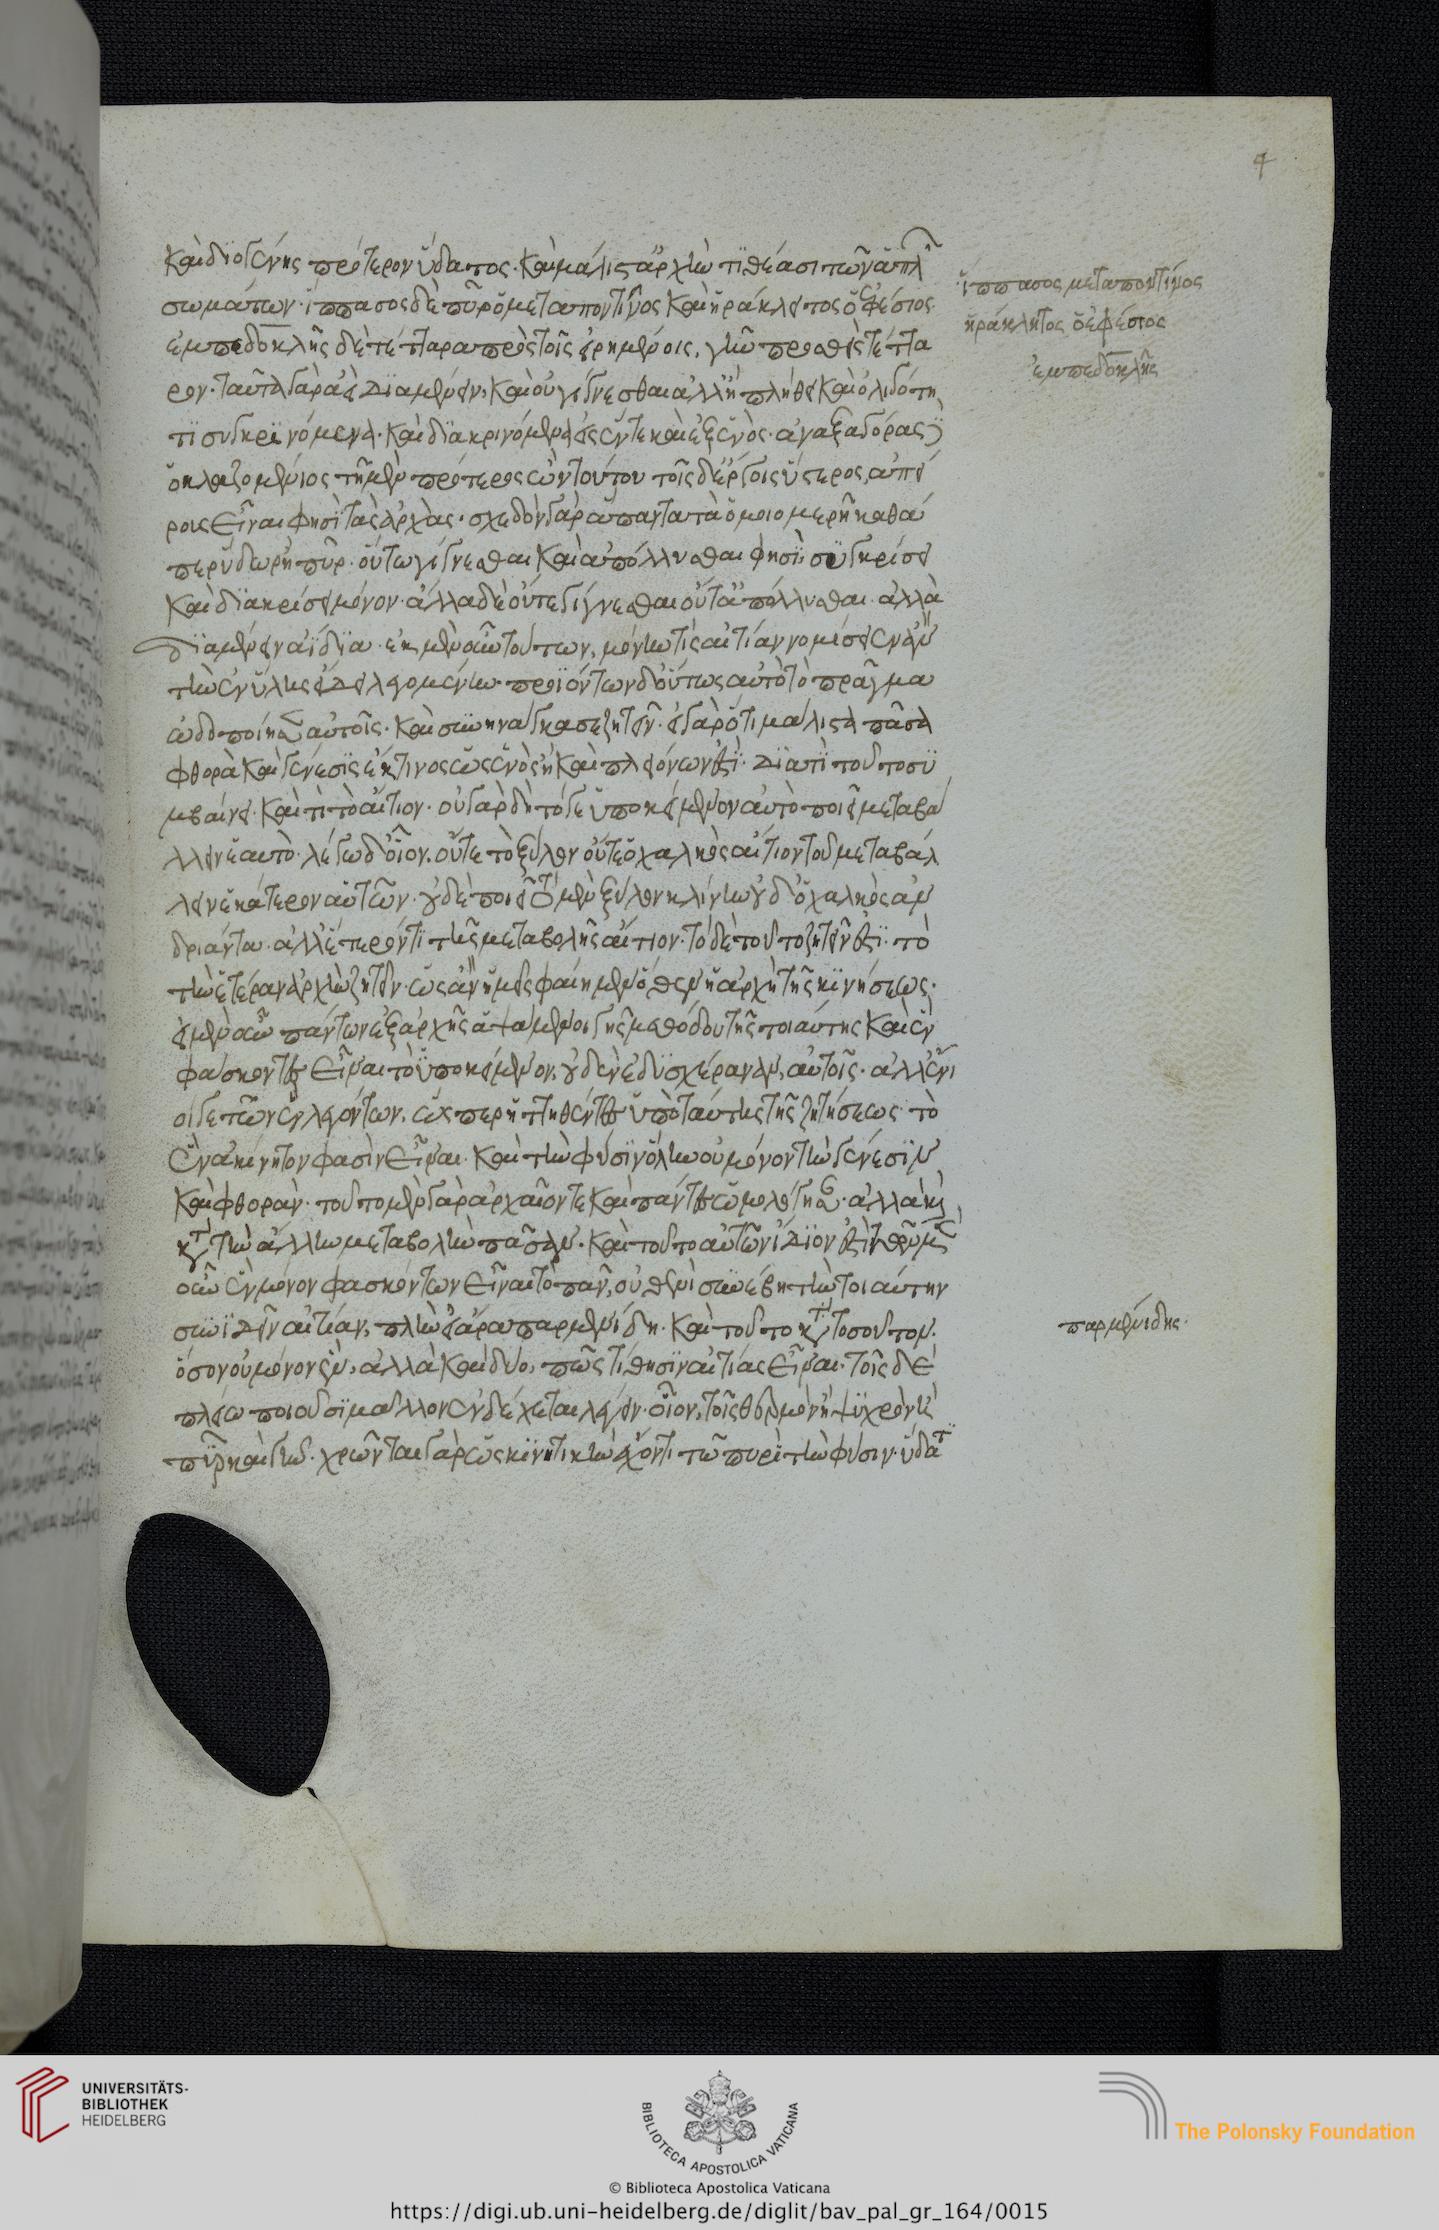 4
καὶ διογένης πρότερον ὕδατος· καὶ μάλιστ' ἀρχὴν τιθέασι τῶν ἁπλ
σωμάτων· ἵππασος δὲ πῦρ ὁ μεταποντῖνος καὶ ἡράκλειτος ὁ ἐφέσιος
ἐμπεδοκλῆς δὲ τέτταρα πρὸς τοῖς εἰρημένοις, γῆν προσθεὶς τέτταρ
ρον· ταῦτα γὰρ ἀεὶ διαμένειν, καὶ οὐ γίγνεσθαι ἀλλ' ἢ πλήθει καὶ ὀλιγότητι
τι συγκρινόμενα· καὶ διακρινόμενα εἰς ἕν τε καὶ ἐξ ἑνός· ἀναξαγόρας
ὁ κλαζομένιος τῇ μὲν πρότερος ὢν τούτου τοῖς δ' ἔργοις ὕστερος, ἀπεί
ρους εἶναι φησὶ τὰς ἀρχάς· σχεδὸν γὰρ ἅπαντα τὰ ὁμοιομερῆ καθά
περ ὕδωρ ἢ πῦρ· οὕτω γίγνεσθαι καὶ ἀπόλλυσθαι φησὶ, συγκρίσει
καὶ διακρίσει μόνον· ἄλλα δὲ οὔτε γίγνεσθαι οὔτ' ἀπόλλυσθαι· ἀλλὰ
διαμένειν ἀΐδια· ἐκ μὲν οὖν τούτων, μόνην τὶς αἰτίαν νομίσειεν ἂν
τὴν ἐν ὕλης εἴδει λεγομένην· προϊόντων δ' οὕτως αὐτὸ τὸ πρᾶγμα
ὡδοποίησεν αὐτοῖς· καὶ συνηνάγκασε ζητεῖν· εἰ γὰρ ὅτι μάλιστα πᾶσα
φθορὰ καὶ γένεσις ἔκ τινος ὡς ἑνὸς ἢ καὶ πλειόνων ἐστὶ· διατὶ τοῦτο συ
μβαίνει· καὶ τί τὸ αἴτιον· οὐ γὰρ δὴ τό γε ὑποκείμενον αὐτὸ ποιεῖ μεταβά
λλειν ἑαυτό· λέγω δ' οἷον, οὔτε τὸ ξύλον οὔτε ὁ χαλκὸς αἴτιον τοῦ μεταβάλ
λειν ἑκάτερον αὐτῶν· οὐδὲ ποιεῖ τὸ μὲν ξύλον κλίνην οὐδ' ὁ χαλκὸς ἀν
δριάντα· ἀλλ' ἕτερόν τι τῆς μεταβολῆς αἴτιον· τὸ δὲ τοῦτο ζητεῖν ἐστὶ· τὸ
τὴν ἑτέραν ἀρχὴν ζητεῖν· ὡς ἂν ἡμεῖς φαίημεν ὅθεν ἡ ἀρχὴ τῆς κινήσεως·
οἱ μὲν οὖν πάντων ἐξ ἀρχῆς ἁψάμενοι τῆς μεθόδου τῆς τοιαύτης καὶ ἓν
φάσκοντες εἶναι τὸ ὑποκείμενον, οὐδὲν ἐδυσχέραναν, αὐτοῖς· ἀλλ' ἔνι
οί γε τῶν ἓν λεγόντων, ὥσπερ ἡττηθέντες ὑπὸ ταύτης τῆς ζητήσεως τὸ
ἓν ἀκίνητον φασὶν εἶναι· καὶ τὴν φύσιν ὅλην οὐ μόνον τὴν γένεσιν
καὶ φθοράν· τοῦτο μὲν γὰρ ἀρχαῖόν τε καὶ πάντες ὡμολόγησαν· ἀλλὰ καὶ
κατὰ τὴν ἄλλην μεταβολὴν πᾶσαν· καὶ τοῦτο αὐτῶν ἴδιον ἐστὶ· τῶν μὲν
οὖν ἓν μόνον φασκόντων εἶναι τὸ πᾶν, οὐθενὶ συνέβη τὴν τοιαύτην
συνιδεῖν αἰτίαν, πλὴν εἰ ἄρα παρμενίδῃ· καὶ τοῦτο κατὰ τοσοῦτον·
ὅσον οὐ μόνον ἓν, ἀλλὰ καὶ δύο, πῶς τίθησιν αἰτίας εἶναι· τοῖς δὲ
πλείω ποιοῦσι μᾶλλον ἐνδέχεται λέγειν· οἷον, τοῖς θερμὸν ἢ ψυχρὸν ἢ
πῦρ καὶ γῆν· χρῶνται γὰρ ὡς κινητικὴν ἔχοντι τῷ πυρὶ τὴν φύσιν· ὕδατι
ἵππασος μεταποντῖνος
ἡράκλητος ὁ ἐφέσιος
ἐμπεδοκλῆς
παρμενίδης·
UNIVERSITÄTS-
BIBLIOTHEK
HEIDELBERG
BIBLIOTECA APOSTOLICA VATICANA
The Polonsky Foundation
© Biblioteca Apostolica Vaticana
https://digi.ub.uni-heidelberg.de/diglit/bav_pal_gr_164/0015